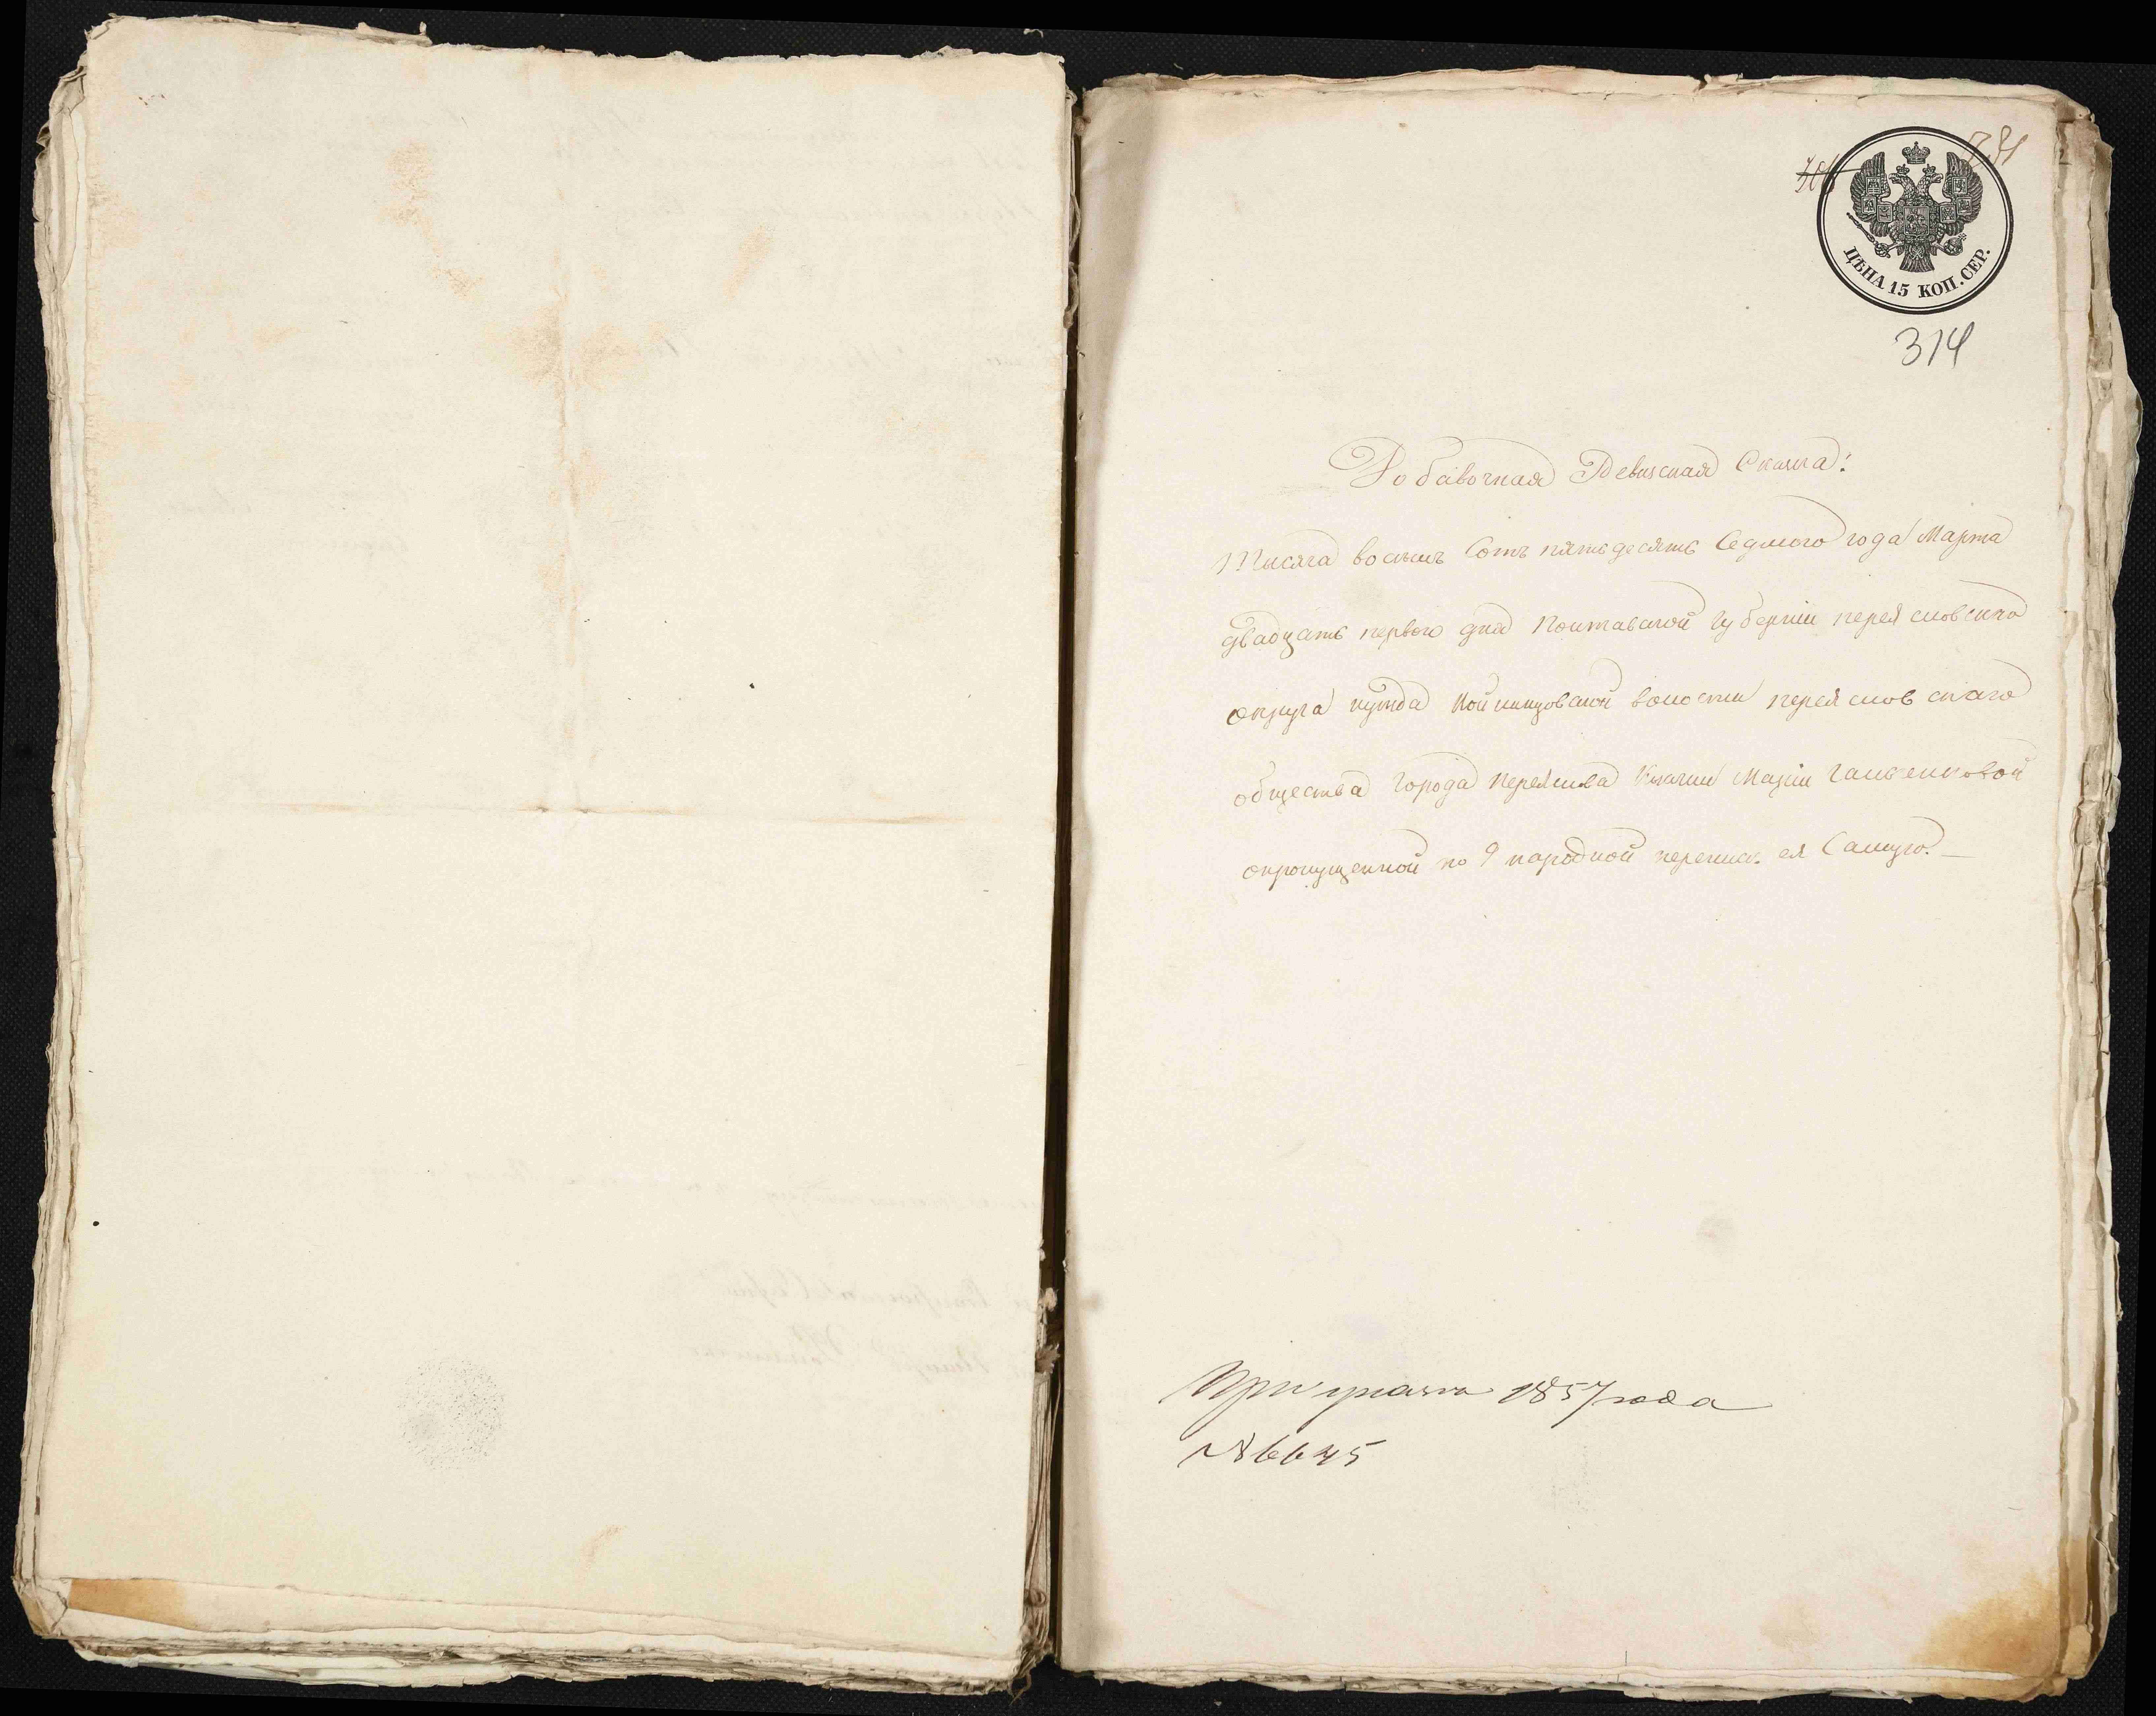 781
306
ЦѢНА 15 КОП. СЕР.
314
Добавочная Ревизская Сказка!
Тысяча восемь Сотъ пятьдесятъ Седмого года Марта
двадцать первого дня Полтавской губерніи переяславскаго
округа волости переяславскаго
общества города Переяслава Казачки Маріи Гальченковой
опропущенной по 9 народной перепис. ея Самую. —
При указѣ 1857 года
№ 6645